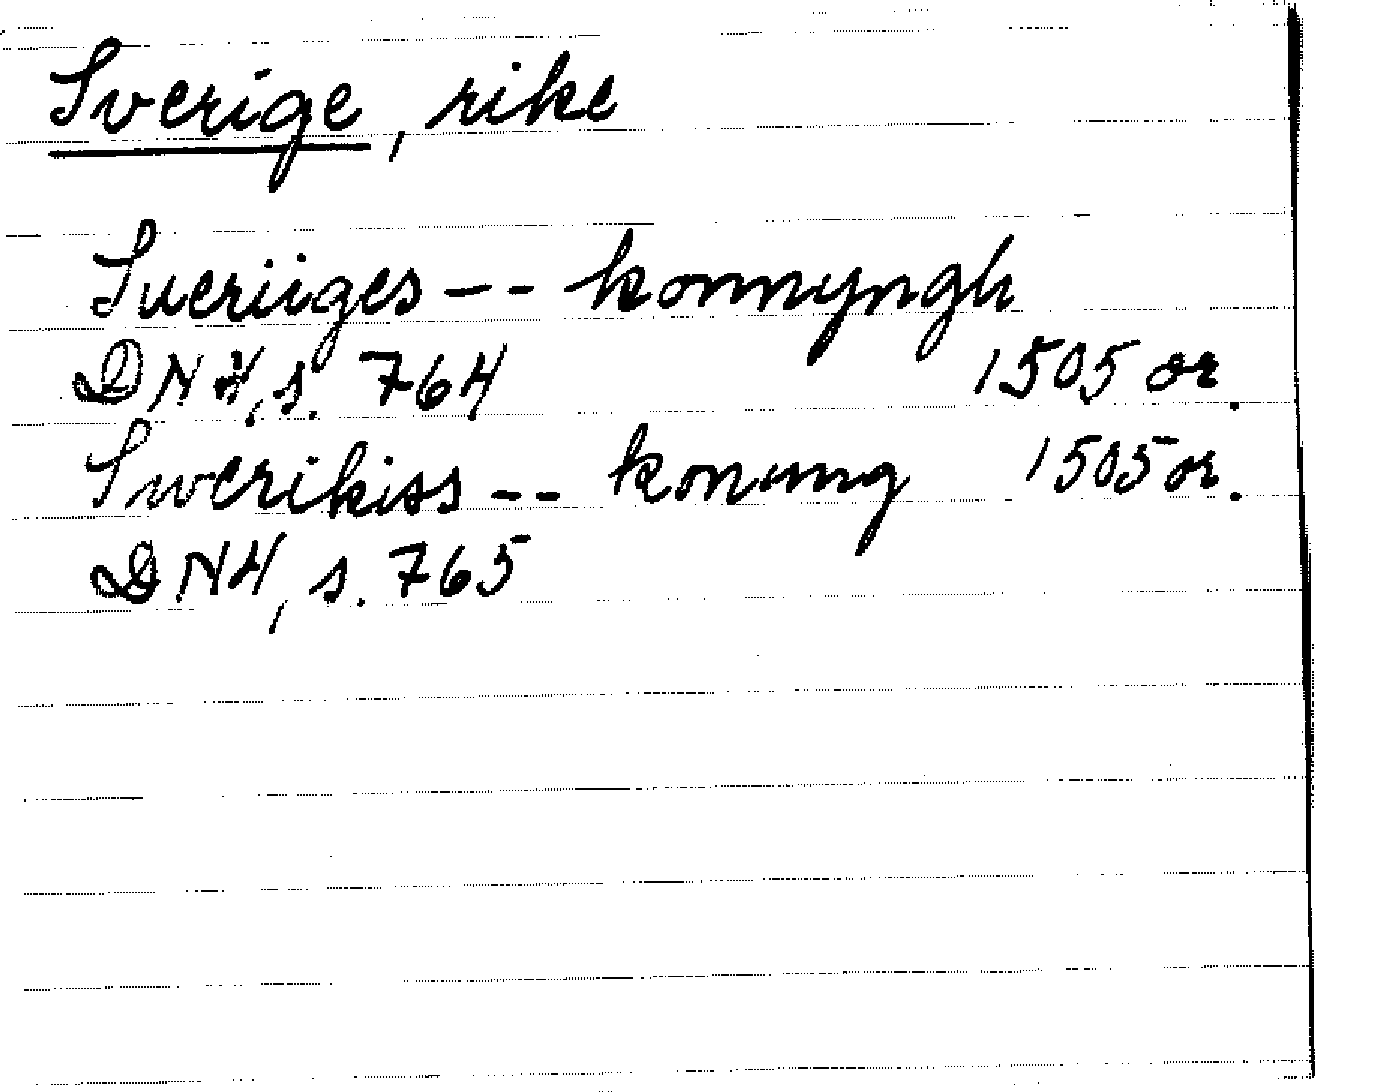 Sverige, rike
Sueriiges -- konnyngh
DN4, s. 764 1505 or.
Swerikiss -- konung 1505 or.
DN4, s. 765